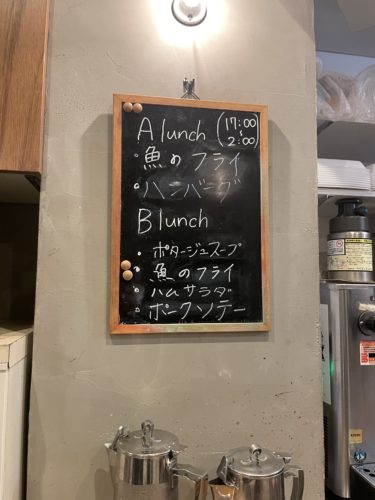 A lunch (17:00
~
2:00)
・魚のフライ
・ハンバーグ
B lunch
・ポタージュスープ
・魚のフライ
・ハムサラダ
・ポークソテー